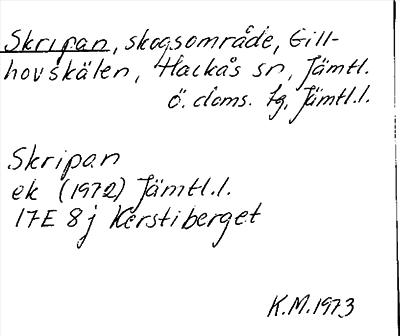 Skripan, skogsområde, Gill-
hovskälen, Hackås sn, Jämtl.
Ö. doms. tg, Jämtl.l.
Skripan
ek (1972) Jämtl.l.
17E 8j Kerstiberget
K.M.1973